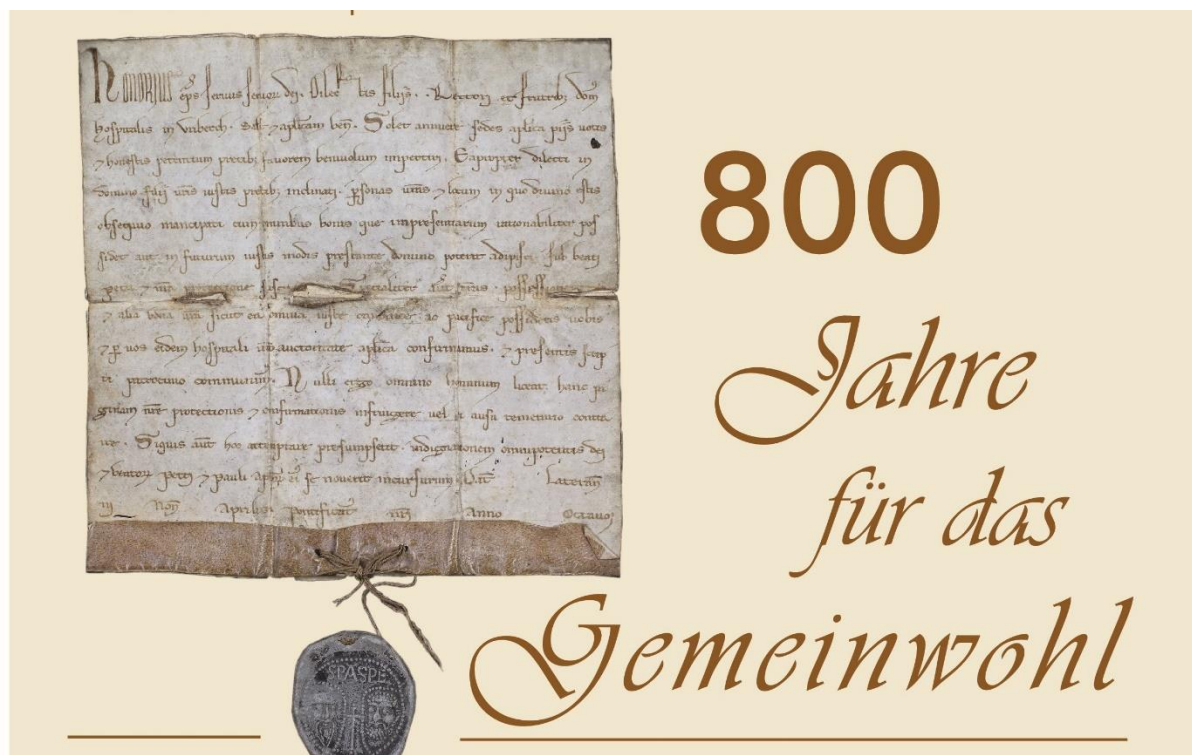 honorius eps seruus seruor dei. Dilectis filiis . . Rectori et fratrib dom
hospitalis in salt aplicam ben. Solet annuere sedes aplica piis uotis
honestis petentium precib fauorem beniuolum impertiri. Eapropter dilecti in
domino filii uris iustis precib inclinati. psonas uras locum in quo diuino estis
obsequio mancipati cum omnibus bonis que impresentiarum rationabiliter pos
sidet aut in futurum iustis modis prestante domino poterit adipisci. sub beati
petri nra protectione Specialiter aut possessiones
alia bona sicut ea omnia iuste ac pacifice possidetis uobis
p uos eidem hospitali auctoritate aplica confirmamus. presentis scrip
ti patrocinio communimus. Nulli ergo omnino hominum liceat hanc pa
ginam nre protectionis confirmationis infringere uel ei ausu temerario contra
ire. Siquis aut hoc attemptare presumpserit. indignationem omnipotentis dei
beator petri pauli se nouerit incursurum. Dat Lateran
Non Aprilis Pontificat nri Anno Octauo
SPASPE
800
Jahre
für das
Gemeinwohl